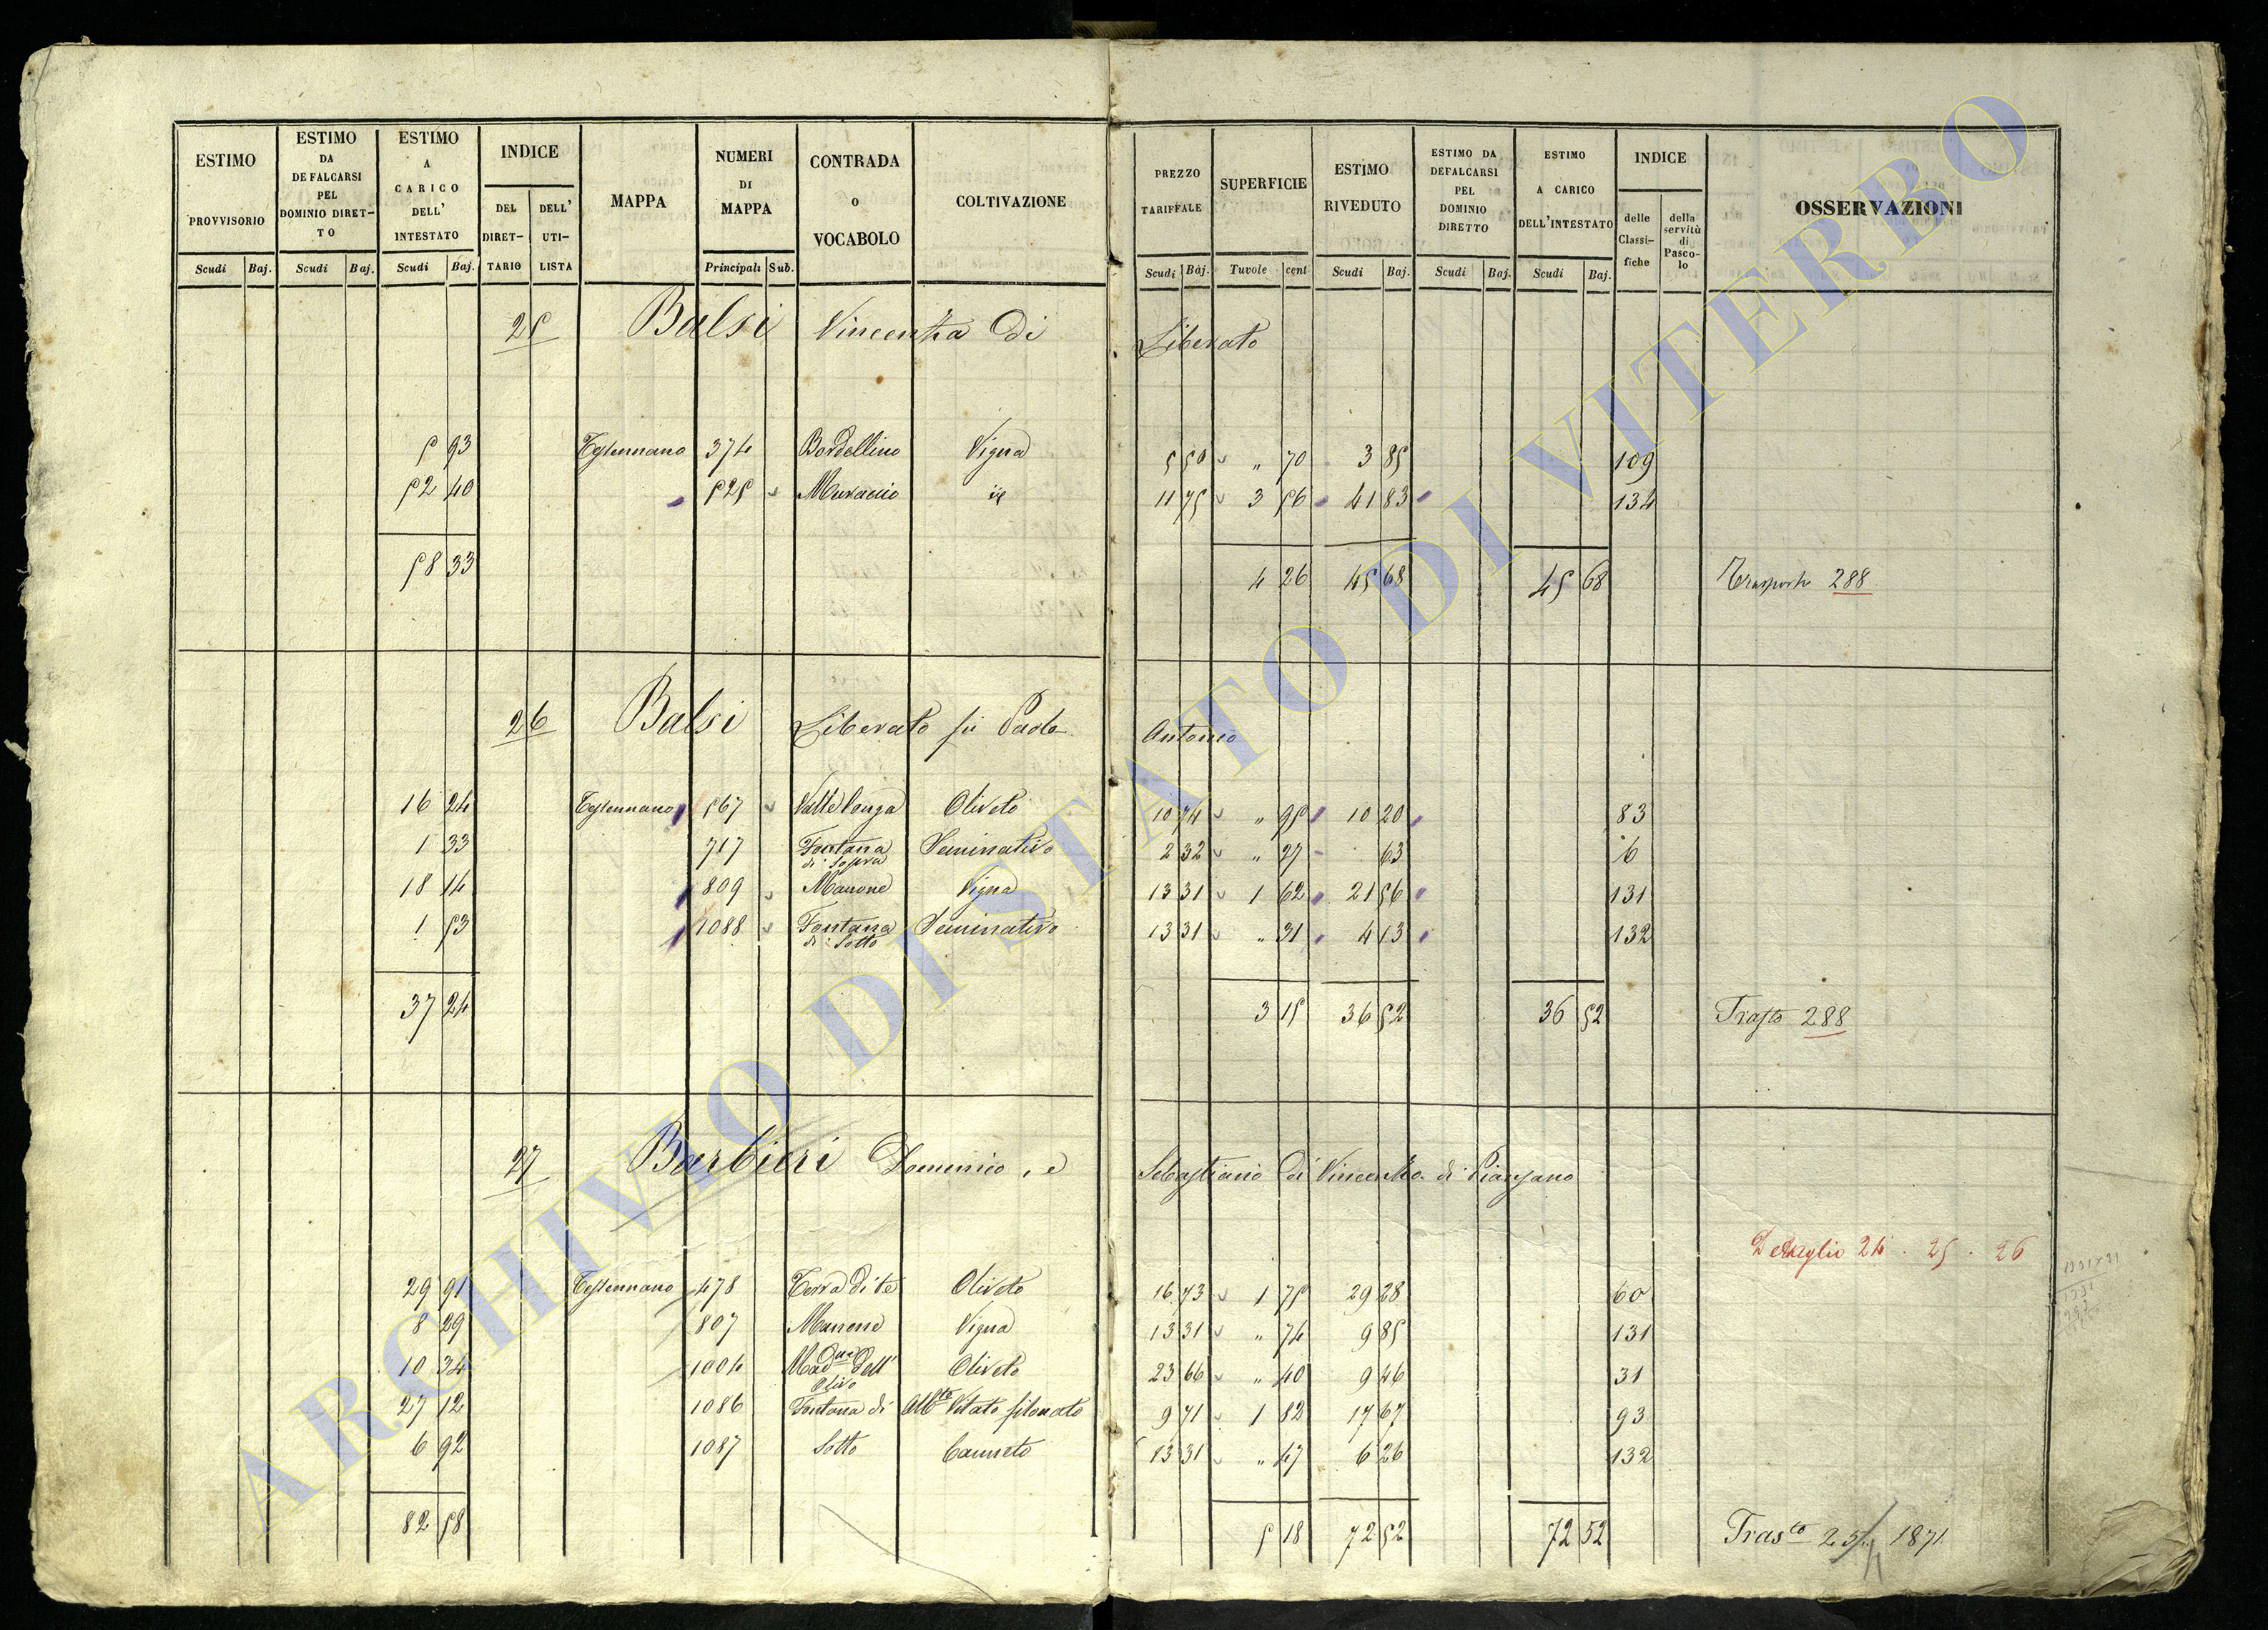 ESTIMO PROVVISORIO
ESTIMO DA DEFALCARSI PEL DOMINIO DIRET-TO
ESTIMO A CARICO DELL' INTESTATO
INDICE
DEL DIRET-TARIO
DELL' UTI-LISTA
MAPPA
NUMERI DI MAPPA
CONTRADA O VOCABOLO
COLTIVAZIONE
PREZZO TARIFFALE
SUPERFICIE
ESTIMO RIVEDUTO
ESTIMO DA DEFALCARSI PEL DOMINIO DIRETTO
ESTIMO A CARICO DELL'INTESTATO
INDICE
delle Classi-fiche
della servitù di Pasco-lo
OSSERVAZIONI
Scudi Baj. Scudi Baj. Scudi Baj. Principali Sub. Scudi Baj. Tavole cent Scudi Baj. Scudi Baj. Scudi Baj.
25 Balsi Vincenza di Liberato
5 93 Tessennano 374 Bordellino Vigna 5 50 " 70 3 85 109
52 40 525 Muraccio id 11 75 3 56 41 83 134
58 33 4 26 45 68 45 68 Trasporto 288
26 Balsi Liberato fù Paolo Antonio
16 24 Tessennano 567 Valle longa Oliveto 10 74 " 95 10 20 83
1 33 717 Fontana di Sopra Seminativo 2 32 " 27 63 6
18 14 809 Marrone Vigna 13 31 1 62 21 56 131
1 53 1088 Fontana di Sotto Seminativo 13 31 " 31 4 13 132
37 24 3 15 36 52 36 52 Trasto 288
27 Barbieri Domenico, e Sebastiano di Vincenzo di Pianzano
Dettaglio 24. 25. 26
29 91 Tessennano 478 Terra di te Oliveto 16 73 1 75 29 28 60
8 29 807 Marrone Vigna 13 31 " 74 9 85 131
10 34 1004 Madna dell' Olivo Oliveto 23 66 " 40 9 46 31
27 12 1086 Fontana di Albto Vitato filonato 9 71 1 82 17 67 93
6 92 1087 Sotto Canneto 13 31 " 47 6 26 132
82 58 5 18 72 52 72 52 Trasto 25 1871
ARCHIVIO DI STATO DI VITERBO